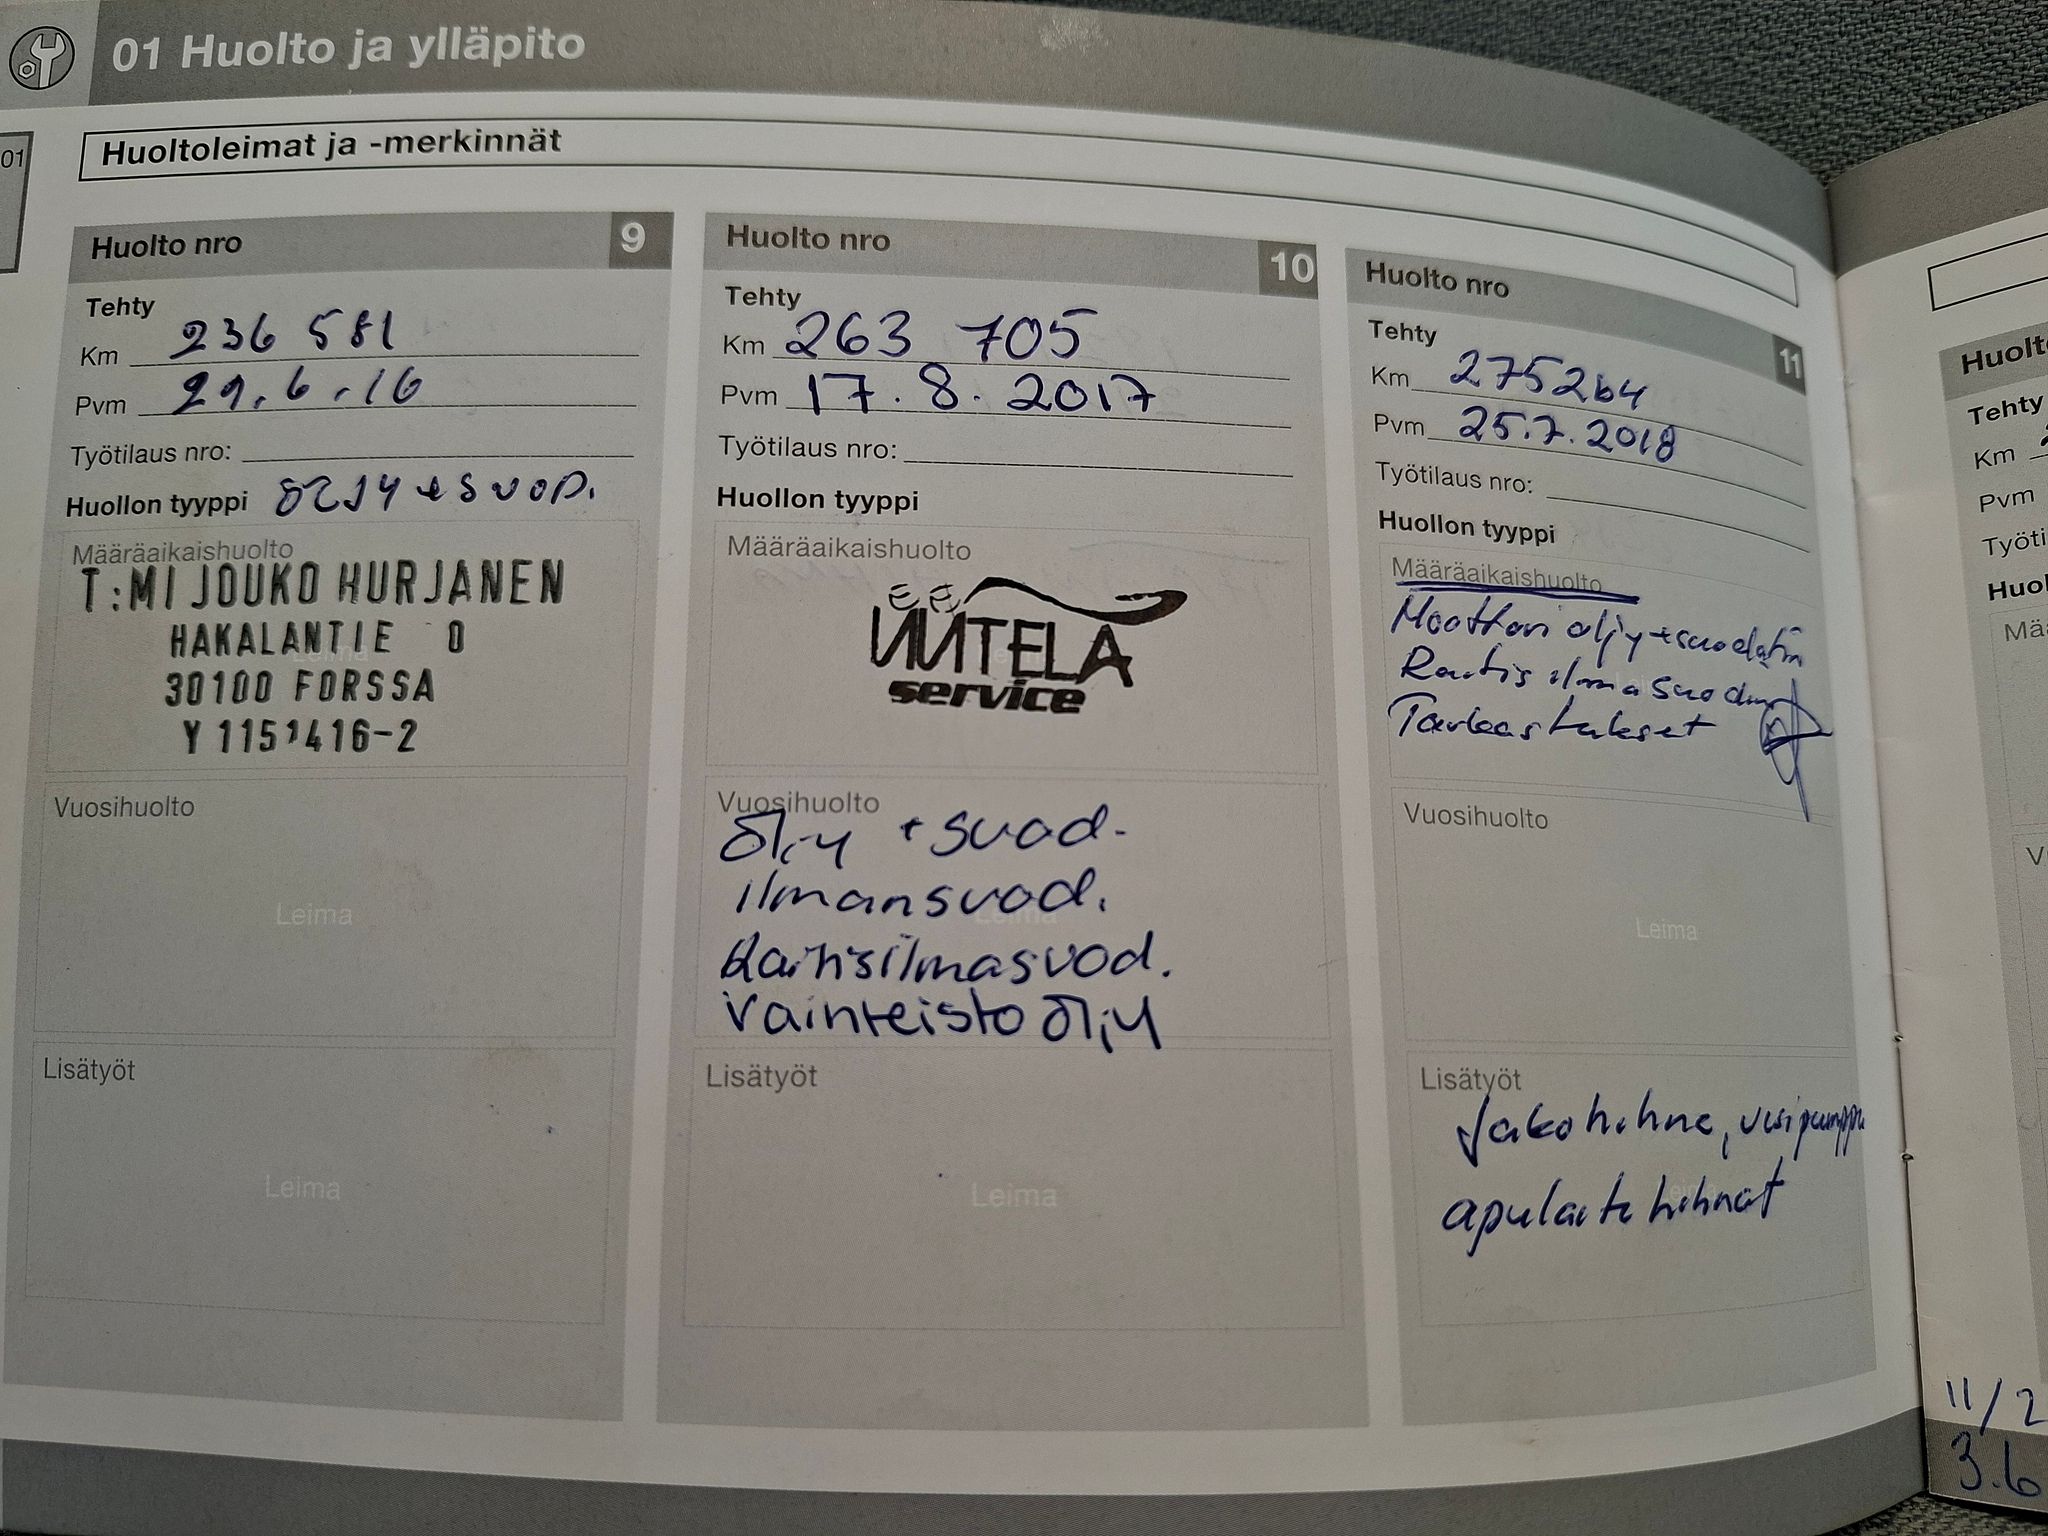 01 Huolto ja ylläpito
01
Huoltoleimat ja -merkinnät
Huolto nro 9
Tehty
Km 236 581
Pvm 29.6.16
Työtilaus nro:
Huollon tyyppi öljy + suod.
Määräaikaishuolto
T:MI JOUKO HURJANEN
HAKALANTIE 0
30100 FORSSA
Y 1151416-2
Vuosihuolto
Leima
Lisätyöt
Leima
Huolto nro 10
Tehty
Km 263 705
Pvm 17.8.2017
Työtilaus nro:
Huollon tyyppi
Määräaikaishuolto
UUTELA
service
Vuosihuolto
öljy + suod.
ilmansuod.
Raitisilmasuod.
Vainteisto öljy
Lisätyöt
Leima
Huolto nro 11
Tehty
Km 275264
Pvm 25.7.2018
Työtilaus nro:
Huollon tyyppi
Määräaikaishuolto
Moottori öljy + suodatin
Raitis ilma suodin
Tarkastukset
Vuosihuolto
Leima
Lisätyöt
Jakohihna, vesipumppu
apulaite hihnat
Tehty
Km
Pvm
11/2
3.6